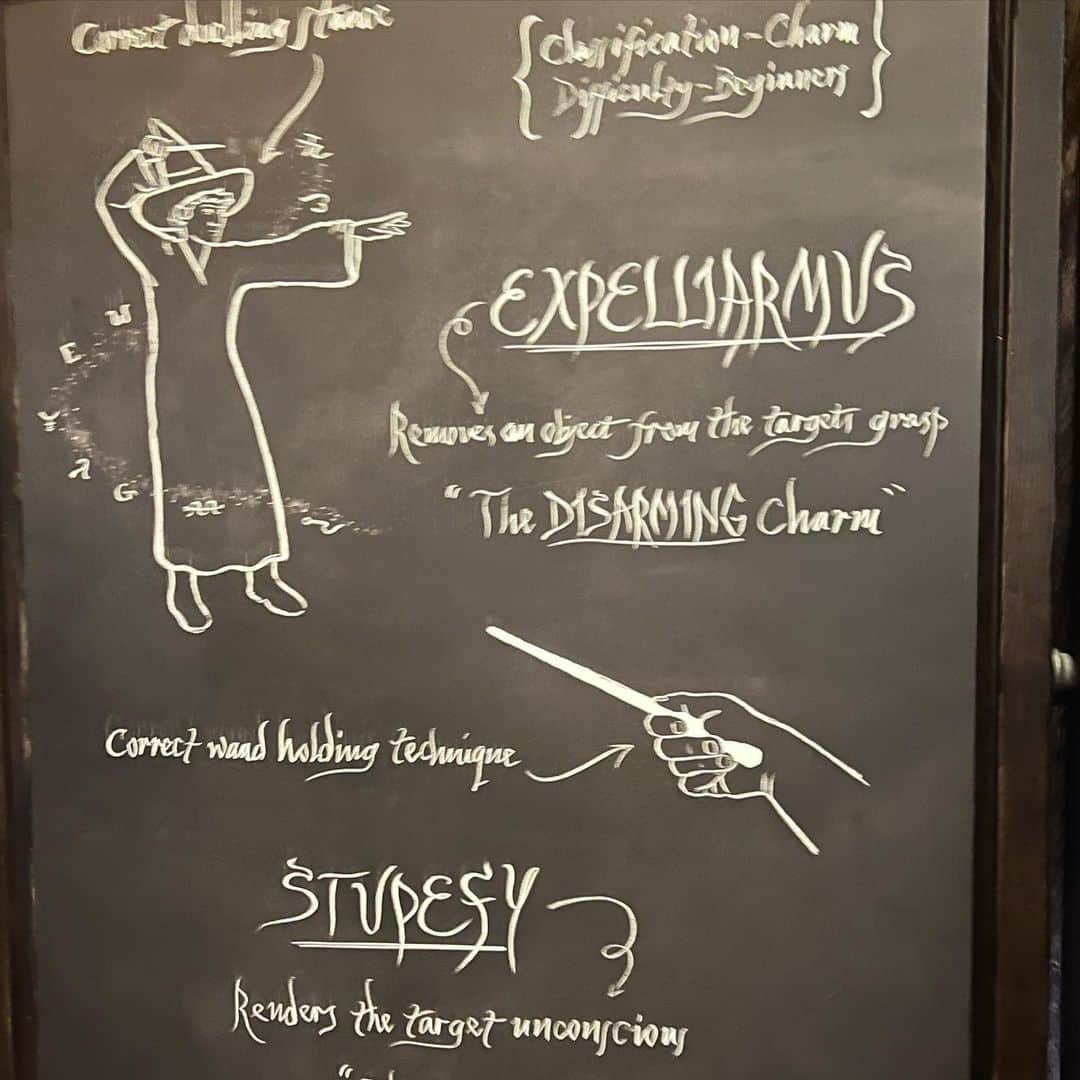 Correct duelling stance
{Classification-Charm
Difficulty-Beginners}
EXPELLIARMUS
Removes an object from the targets grasp
"The DISARMING Charm"
Correct wand holding technique
STUPEFY
Renders the target unconscious